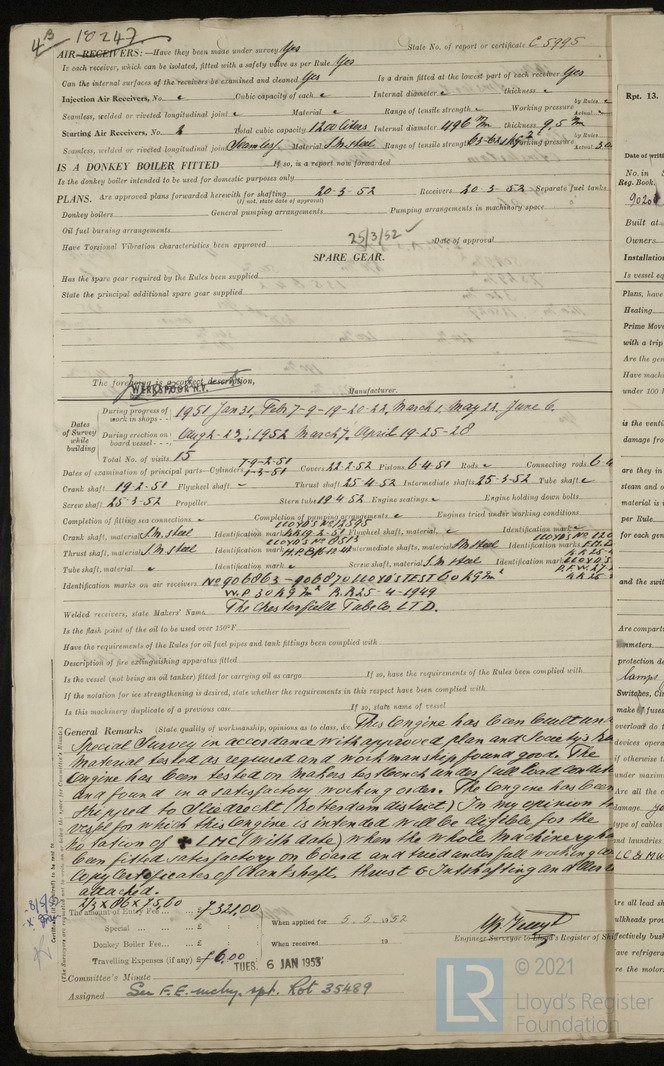 4B 18247
AIR RECEIVERS:—Have they been made under survey Yes State No. of report or certificate C 5995
Is each receiver, which can be isolated, fitted with a safety valve as per Rule Yes
Can the internal surfaces of the receivers be examined and cleaned Yes Is a drain fitted at the lowest part of each receiver Yes
Injection Air Receivers, No. Cubic capacity of each Internal diameter thickness
Seamless, welded or riveted longitudinal joint Material Range of tensile strength Working pressure by Rules Actual
Starting Air Receivers, No. 2 Total cubic capacity 1200 liters Internal diameter 496 m/m thickness 9,5 m/m
Seamless, welded or riveted longitudinal joint Seamless Material S.M. steel Range of tensile strength Working pressure by Rules Actual 30
IS A DONKEY BOILER FITTED If so, is a report now forwarded
Is the donkey boiler intended to be used for domestic purposes only
PLANS. Are approved plans forwarded herewith for shafting 20-3-52 Receivers 20-3-52 Separate fuel tanks
(If not, state date of approval)
Donkey boilers General pumping arrangements Pumping arrangements in machinery space
Oil fuel burning arrangements
Have Torsional Vibration characteristics been approved 25/3/52 Date of approval
SPARE GEAR.
Has the spare gear required by the Rules been supplied
State the principal additional spare gear supplied
The foregoing is a correct description,
WERKSPOOR N.V. Manufacturer.
Dates of Survey while building
During progress of work in shops - - 1951 Jan 31, Feb 7-9-19-20-22, March 1, May 22, June 6.
During erection on board vessel - - - Augh-23, 1952 March 7, April 19-25-28
Total No. of visits 15
Dates of examination of principal parts—Cylinders 7-9-2-51 1-3-51 Covers 22-2-52 Pistons 6-4-51 Rods Connecting rods 6-4
Crank shaft 19-2-51 Flywheel shaft Thrust shaft 25-4-52 Intermediate shafts 25-3-52 Tube shaft
Screw shaft 25-3-52 Propeller Stern tube 19-4-52 Engine seatings Engine holding down bolts
Completion of fitting sea connections Completion of pumping arrangements Engines tried under working conditions
Crank shaft, material S.M. steel Identification mark LLOYD'S No 12595 Flywheel shaft, material Identification mark
Thrust shaft, material S.M. steel Identification mark Intermediate shafts, material S.M. steel Identification marks
Tube shaft, material Identification mark Screw shaft, material S.M. steel Identification mark
Identification marks on air receivers No 906863-906870 LLOYD'S TEST 60 KG/m²
W.P. 30 KG/m² R.R 25-4-1949
Welded receivers, state Makers' Name The Chesterfield Tube Co. LTD.
Is the flash point of the oil to be used over 150°F.
Have the requirements of the Rules for oil fuel pipes and tank fittings been complied with
Description of fire extinguishing apparatus fitted
Is the vessel (not being an oil tanker) fitted for carrying oil as cargo If so, have the requirements of the Rules been complied with
If the notation for ice strengthening is desired, state whether the requirements in this respect have been complied with
Is this machinery duplicate of a previous case If so, state name of vessel
General Remarks (State quality of workmanship, opinions as to class, &c. This Engine has been built und
Special Survey in accordance with approved plan and Society's
Material tested as required and workmanship found good. The
Engine has been tested on makers testbench under full load
and found in a satisfactory working order. The Engine has been
shipped to Sliedrecht (Rotterdam district) In my opinion
vessel for which this engine is intended will be eligible for the
notation of ✠ LMC (with date) when the whole machinery
been fitted satisfactory on board and tried under full working
Copy Certificates of Crankshaft, thrust & Intshafting
attached.
2/3 x 86 x 75,60
The amount of Entry Fee ... £ 7321,00 When applied for 5.5.1952
Special ... ... £
Donkey Boiler Fee ... £ When received 19
Travelling Expenses (if any) £ 6.00
Engineer Surveyor to Lloyd's Register of Shi
TUES. 6 JAN 1953
Committee's Minute
Assigned See F.E. mchy. rpt. Rot 35489
(The Surveyors are requested not to write on or below the space for Committee's Minute.)
Rpt. 13.
Date of writ
No. in
Reg. Book.
Built at
Owners
Installation
Is vessel eq
Plans, have
Heating
Prime Move
with a trip
Are the gen
Have machi
under 100 k
is the venti
damage fro
are they in
steam and o
material is
per Rule
for each gen
and the swit
Are compart
protection de
lamps
Switches, Ci
make fuses
overload do t
devices opera
if otherwise t
under maxim
Are all the c
damage
type of cables
and laundries
Are all lead sh
bulkheads prov
effectively bush
have refrigera
re the motor
LR © 2021
Lloyd's Register
Foundation